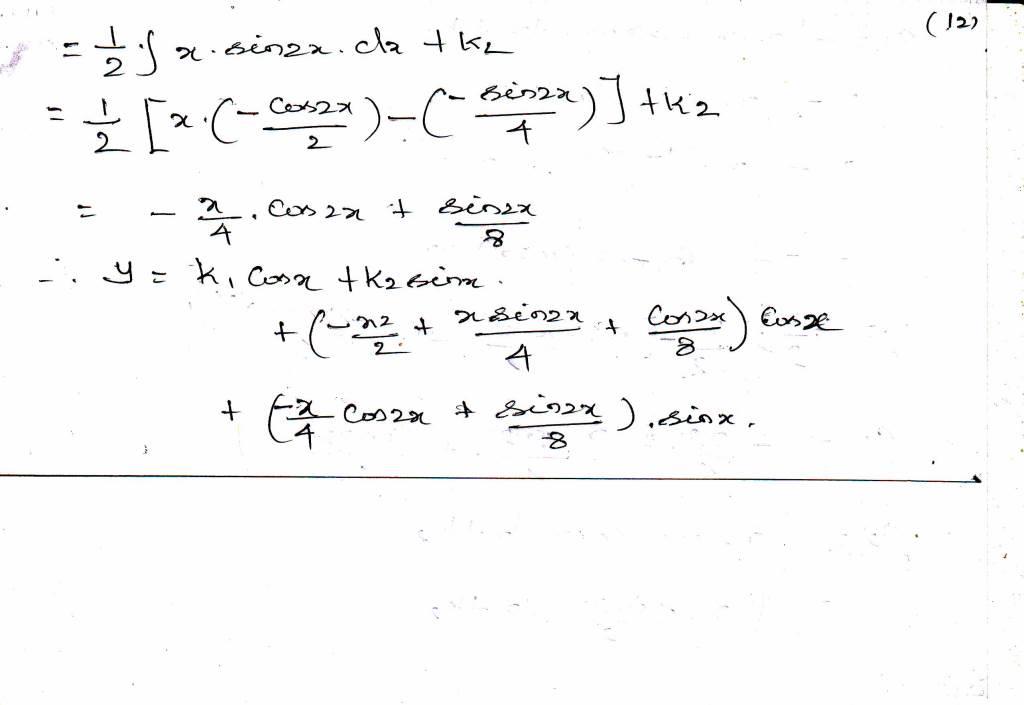 (12)
= 1/2 ∫ x . sin2x . dx + k2
= 1/2 [x . (- cos2x/2) - (- sin2x/4)] + k2
= - x/4 . cos2x + sin2x/8
∴ y = k1 cosx + k2 sinx .
+ (- x2/2 + x sin2x/4 + cos2x/8) cosx
+ (-x/4 cos2x + sin2x/8) . sinx .